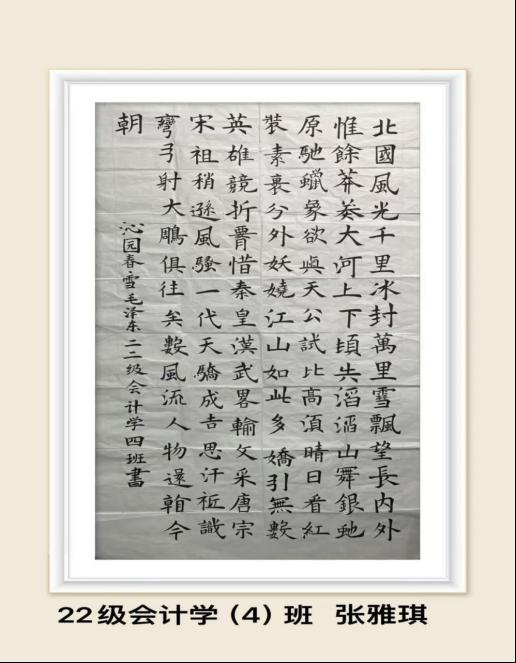 北國風光千里冰封萬里雪飄望長内外
惟餘莽莽大河上下頃失滔滔山舞銀虵
原馳蠟象欲與天公試比高須晴日看紅
裝素裹分外妖嬈江山如此多嬌引無數
英雄競折惜秦皇漢武畧輸文采唐宗
宋祖稍遜風騷一代天驕成吉思汗祗識
彎弓射大鵰俱往矣數風流人物還今
朝
沁园春雪毛泽东二二级会计学四班書
22级会计学（4）班 张雅琪